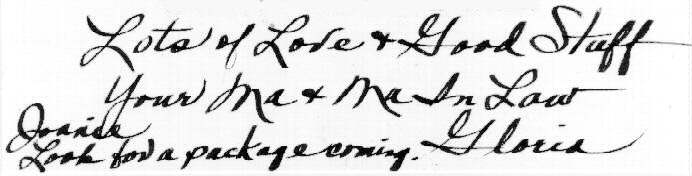 Lots of Love & Good Stuff
Your Ma & Ma In Law
Joanie
Look for a package coming. Gloria